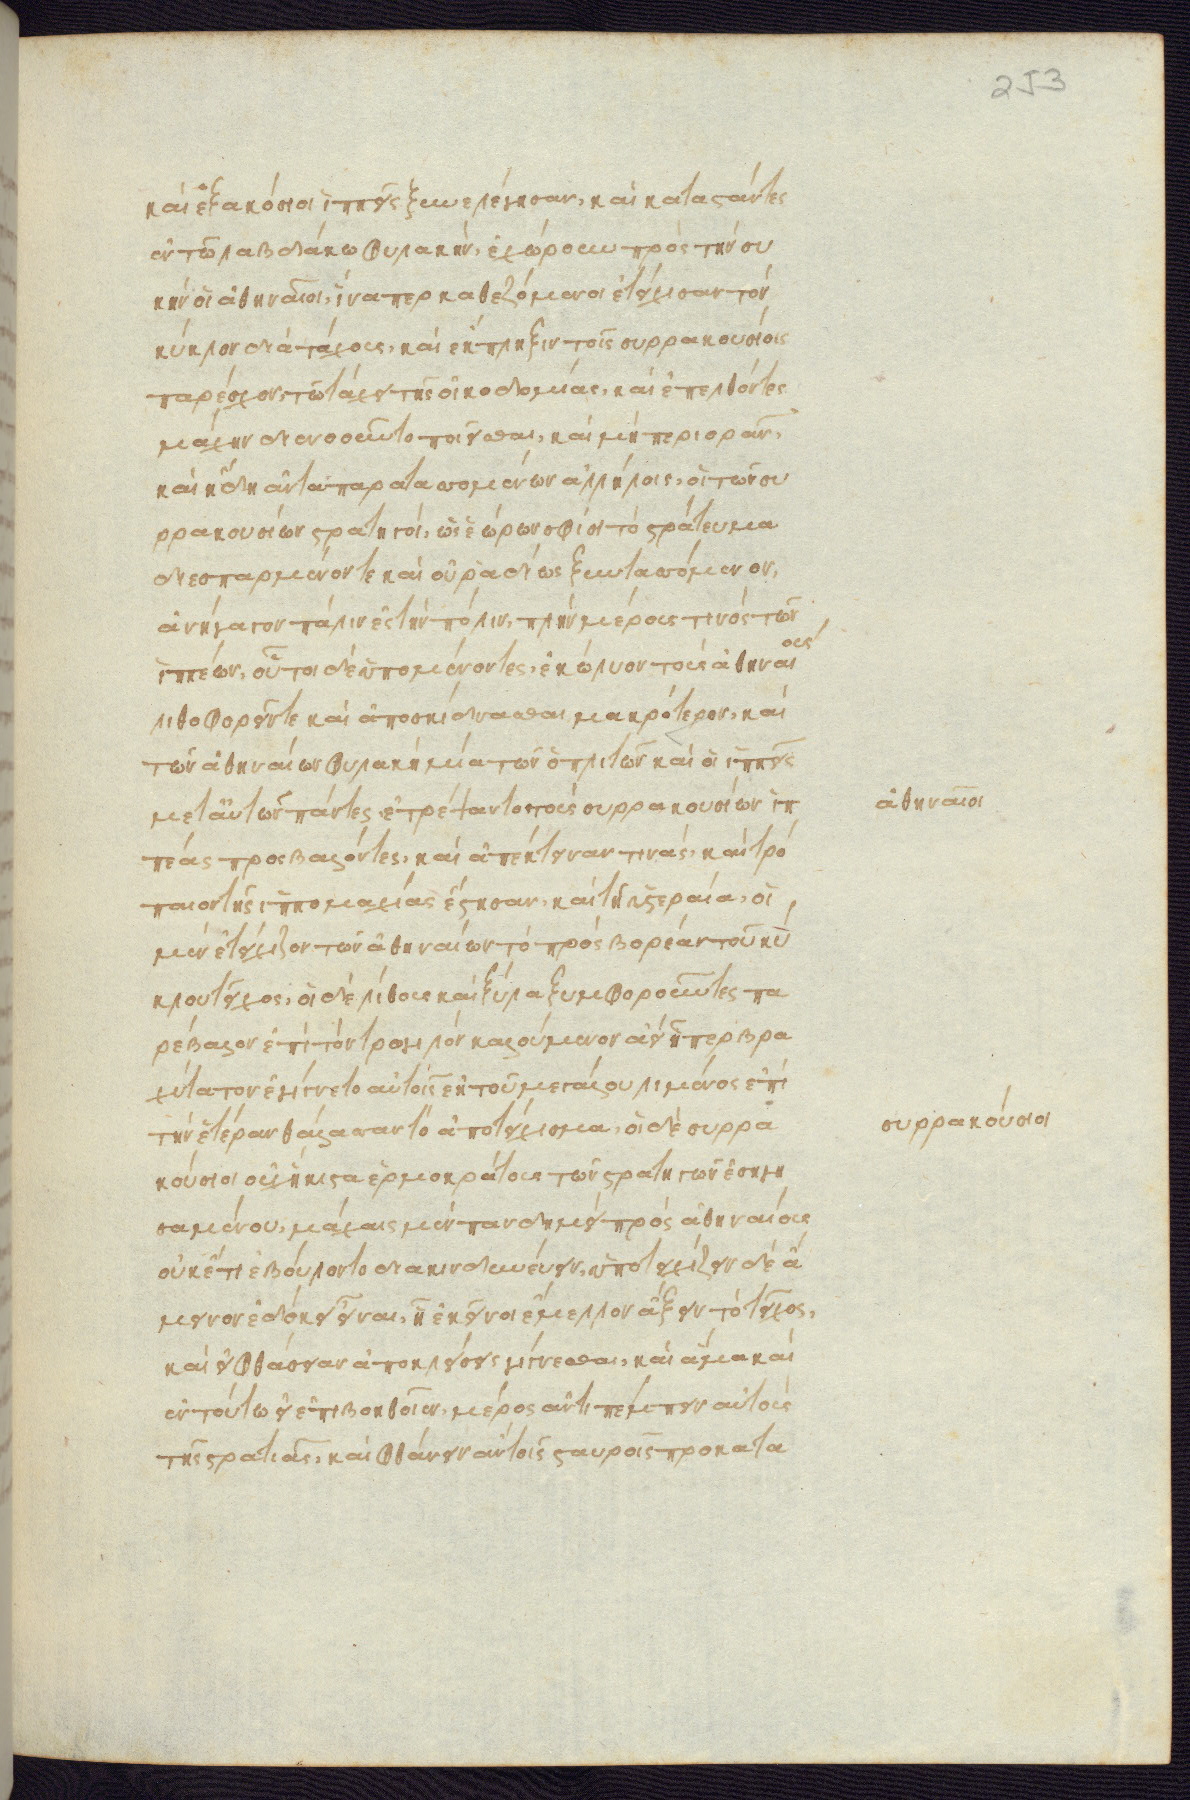 253
καὶ ἑξακόσιοι ἱππεῖς ξυνελέγησαν, καὶ καταστάντες
ἐν τῶ λαβδάλω φυλακὴν, ἐχώρουν πρὸς τὴν συ
κῆν οἱ ἀθηναῖοι, ἵνα περ καθεζόμενοι ἐτείχισαν τὸν
κύκλον διὰ τάχους, καὶ ἔκπληξιν τοῖς συρρακουσίοις
παρέσχον τῶ τάχει τῆς οἰκοδομίας, καὶ ἐπελθόντες
μάχην διενοοῦντο ποιεῖσθαι, καὶ μὴ περιορᾶν,
καὶ ἤδη ἀντιπαρατασσομένων ἀλλήλοις, οἱ τῶν συ
ρρακουσίων στρατηγοὶ, ὡς ἑώρων σφίσι τὸ στράτευμα
διεσπαρμένον τε καὶ οὐ ῥαδίως ξυντασσόμενον,
ἀνήγαγον πάλιν ἐς τὴν πόλιν, πλὴν μέρους τινὸς τῶν
ἱππέων, οὗτοι δὲ ὑπομένοντες, ἐκώλυον τοὺς ἀθηναίους
λιθοφορεῖν τε καὶ ἀποσκίδνασθαι μακρότερον, καὶ
τῶν ἀθηναίων φυλακὴ μία τῶν ὁπλιτῶν καὶ οἱ ἱππεῖς
μετ αὐτῶν πάντες, ἐτρέψαντο τοὺς συρρακουσίων ἱπ
πέας προσβαλόντες, καὶ ἀπέκτειναν τινὰς, καὶ τρό
παιον τῆς ἱππομαχίας ἔστησαν, καὶ τῆ ὑστεραία, οἱ
μὲν ἐτείχιζον τῶν ἀθηναίων τὸ πρὸς βορέαν τοῦ κύ
κλου τεῖχος, οἱ δὲ λίθους καὶ ξύλα ξυμφοροῦντες πα
ρέβαλλον ἐπὶ τὸν τρωγιλὸν καλούμενον αἰεὶ ἧπερ βρα
χύτατον ἐγίγνετο αὐτοῖς ἐκ τοῦ μεγάλου λιμένος ἐπὶ
τὴν ἑτέραν θάλασσαν τὸ ἀποτείχισμα, οἱ δὲ συρρα
κούσιοι οὐχ ἥκιστα ἑρμοκράτους τῶν στρατηγῶν ἐσηγη
σαμένου, μάχαις μὲν πανδημεὶ πρὸς ἀθηναίους
οὐκέτι ἐβούλοντο διακινδυνεύειν, ὑποτειχίζειν δὲ ἄ
μεινον ἐδόκει εἶναι, ἧ ἐκεῖνοι ἔμελλον ἄξειν τὸ τεῖχος,
καὶ εἰ φθάσειαν ἀποκλείσεις γίγνεσθαι, καὶ ἅμα καὶ
ἐν τούτω εἰ ἐπιβοηθοῖεν, μέρος ἀντιπέμπειν αὐτοὺς
τῆς στρατιᾶς, καὶ φθάνειν αὐτοῖς σταυροῖς προκατα
ἀθηναῖοι
συρρακούσιοι